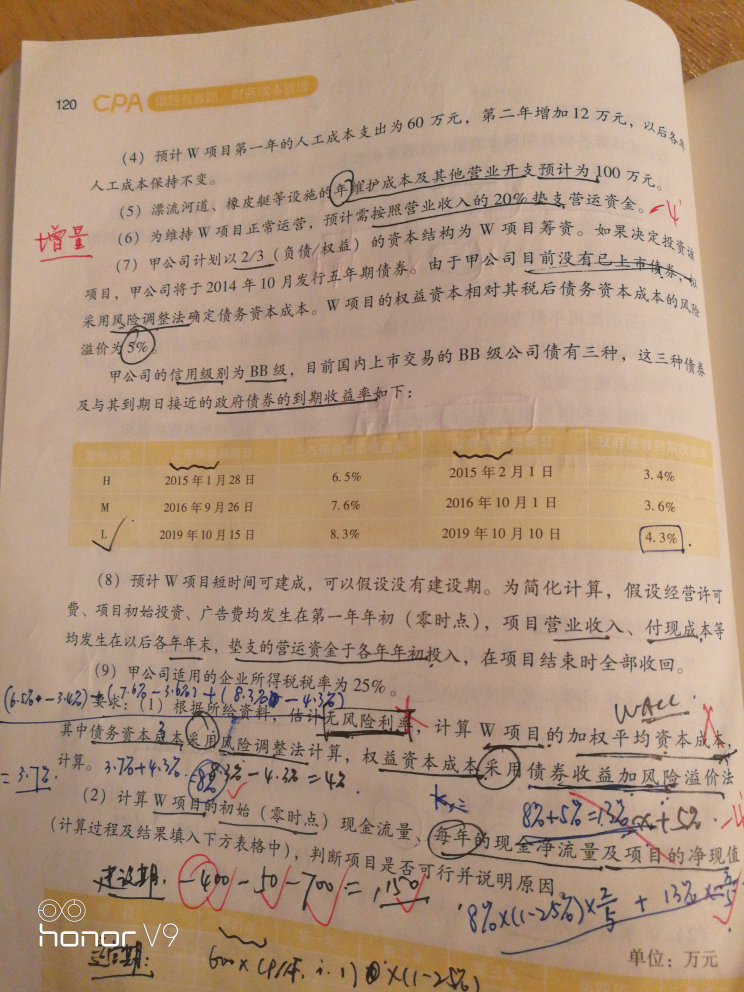 120 CPA
(4) 预计W项目第一年的人工成本支出为60万元，第二年增加12万元，以后各年
人工成本保持不变。
(5) 漂流河道、橡皮艇等设施的年维护成本及其他营业开支预计为100万元。
(6) 为维持W项目正常运营，预计需按照营业收入的20%垫支营运资金。
增量
(7) 甲公司计划以2/3（负债/权益）的资本结构为W项目筹资。如果决定投资该
项目，甲公司将于2014年10月发行五年期债券。由于甲公司目前没有已上市债券，拟
采用风险调整法确定债务资本成本。W项目的权益资本相对其税后债务资本成本的风险
溢价为5%。
甲公司的信用级别为BB级，目前国内上市交易的BB级公司债有三种，这三种债券
及与其到期日接近的政府债券的到期收益率如下：
H 2015年1月28日 6.5% 2015年2月1日 3.4%
M 2016年9月26日 7.6% 2016年10月1日 3.6%
L 2019年10月15日 8.3% 2019年10月10日 4.3%
(8) 预计W项目短时间可建成，可以假设没有建设期。为简化计算，假设经营许可
费、项目初始投资、广告费均发生在第一年年初（零时点），项目营业收入、付现成本等
均发生在以后各年年末，垫支的营运资金于各年年初投入，在项目结束时全部收回。
(9) 甲公司适用的企业所得税税率为25%。
(6.5% - 3.4%) + (7.6% - 3.6%) + (8.3% - 4.3%)
WACC
要求：(1) 根据所给资料，估计无风险利率，计算W项目的加权平均资本成本，
其中债务资本成本采用风险调整法计算，权益资本成本采用债券收益加风险溢价法
3
= 3.7%
计算。 3.7%+4.3% = 8% 8.3% - 4.3% = 4%
8%+5%=13% x+5%
(2) 计算W项目的初始（零时点）现金流量、每年的现金净流量及项目的净现值
（计算过程及结果填入下方表格中），判断项目是否可行并说明原因。
建设期: -400 - 50 - 700 = 1150
8%×(1-25%)×2/5 + 13%×3/5
honor V9
单位：万元
600×(P/F, i, 1) ×(1-25%)